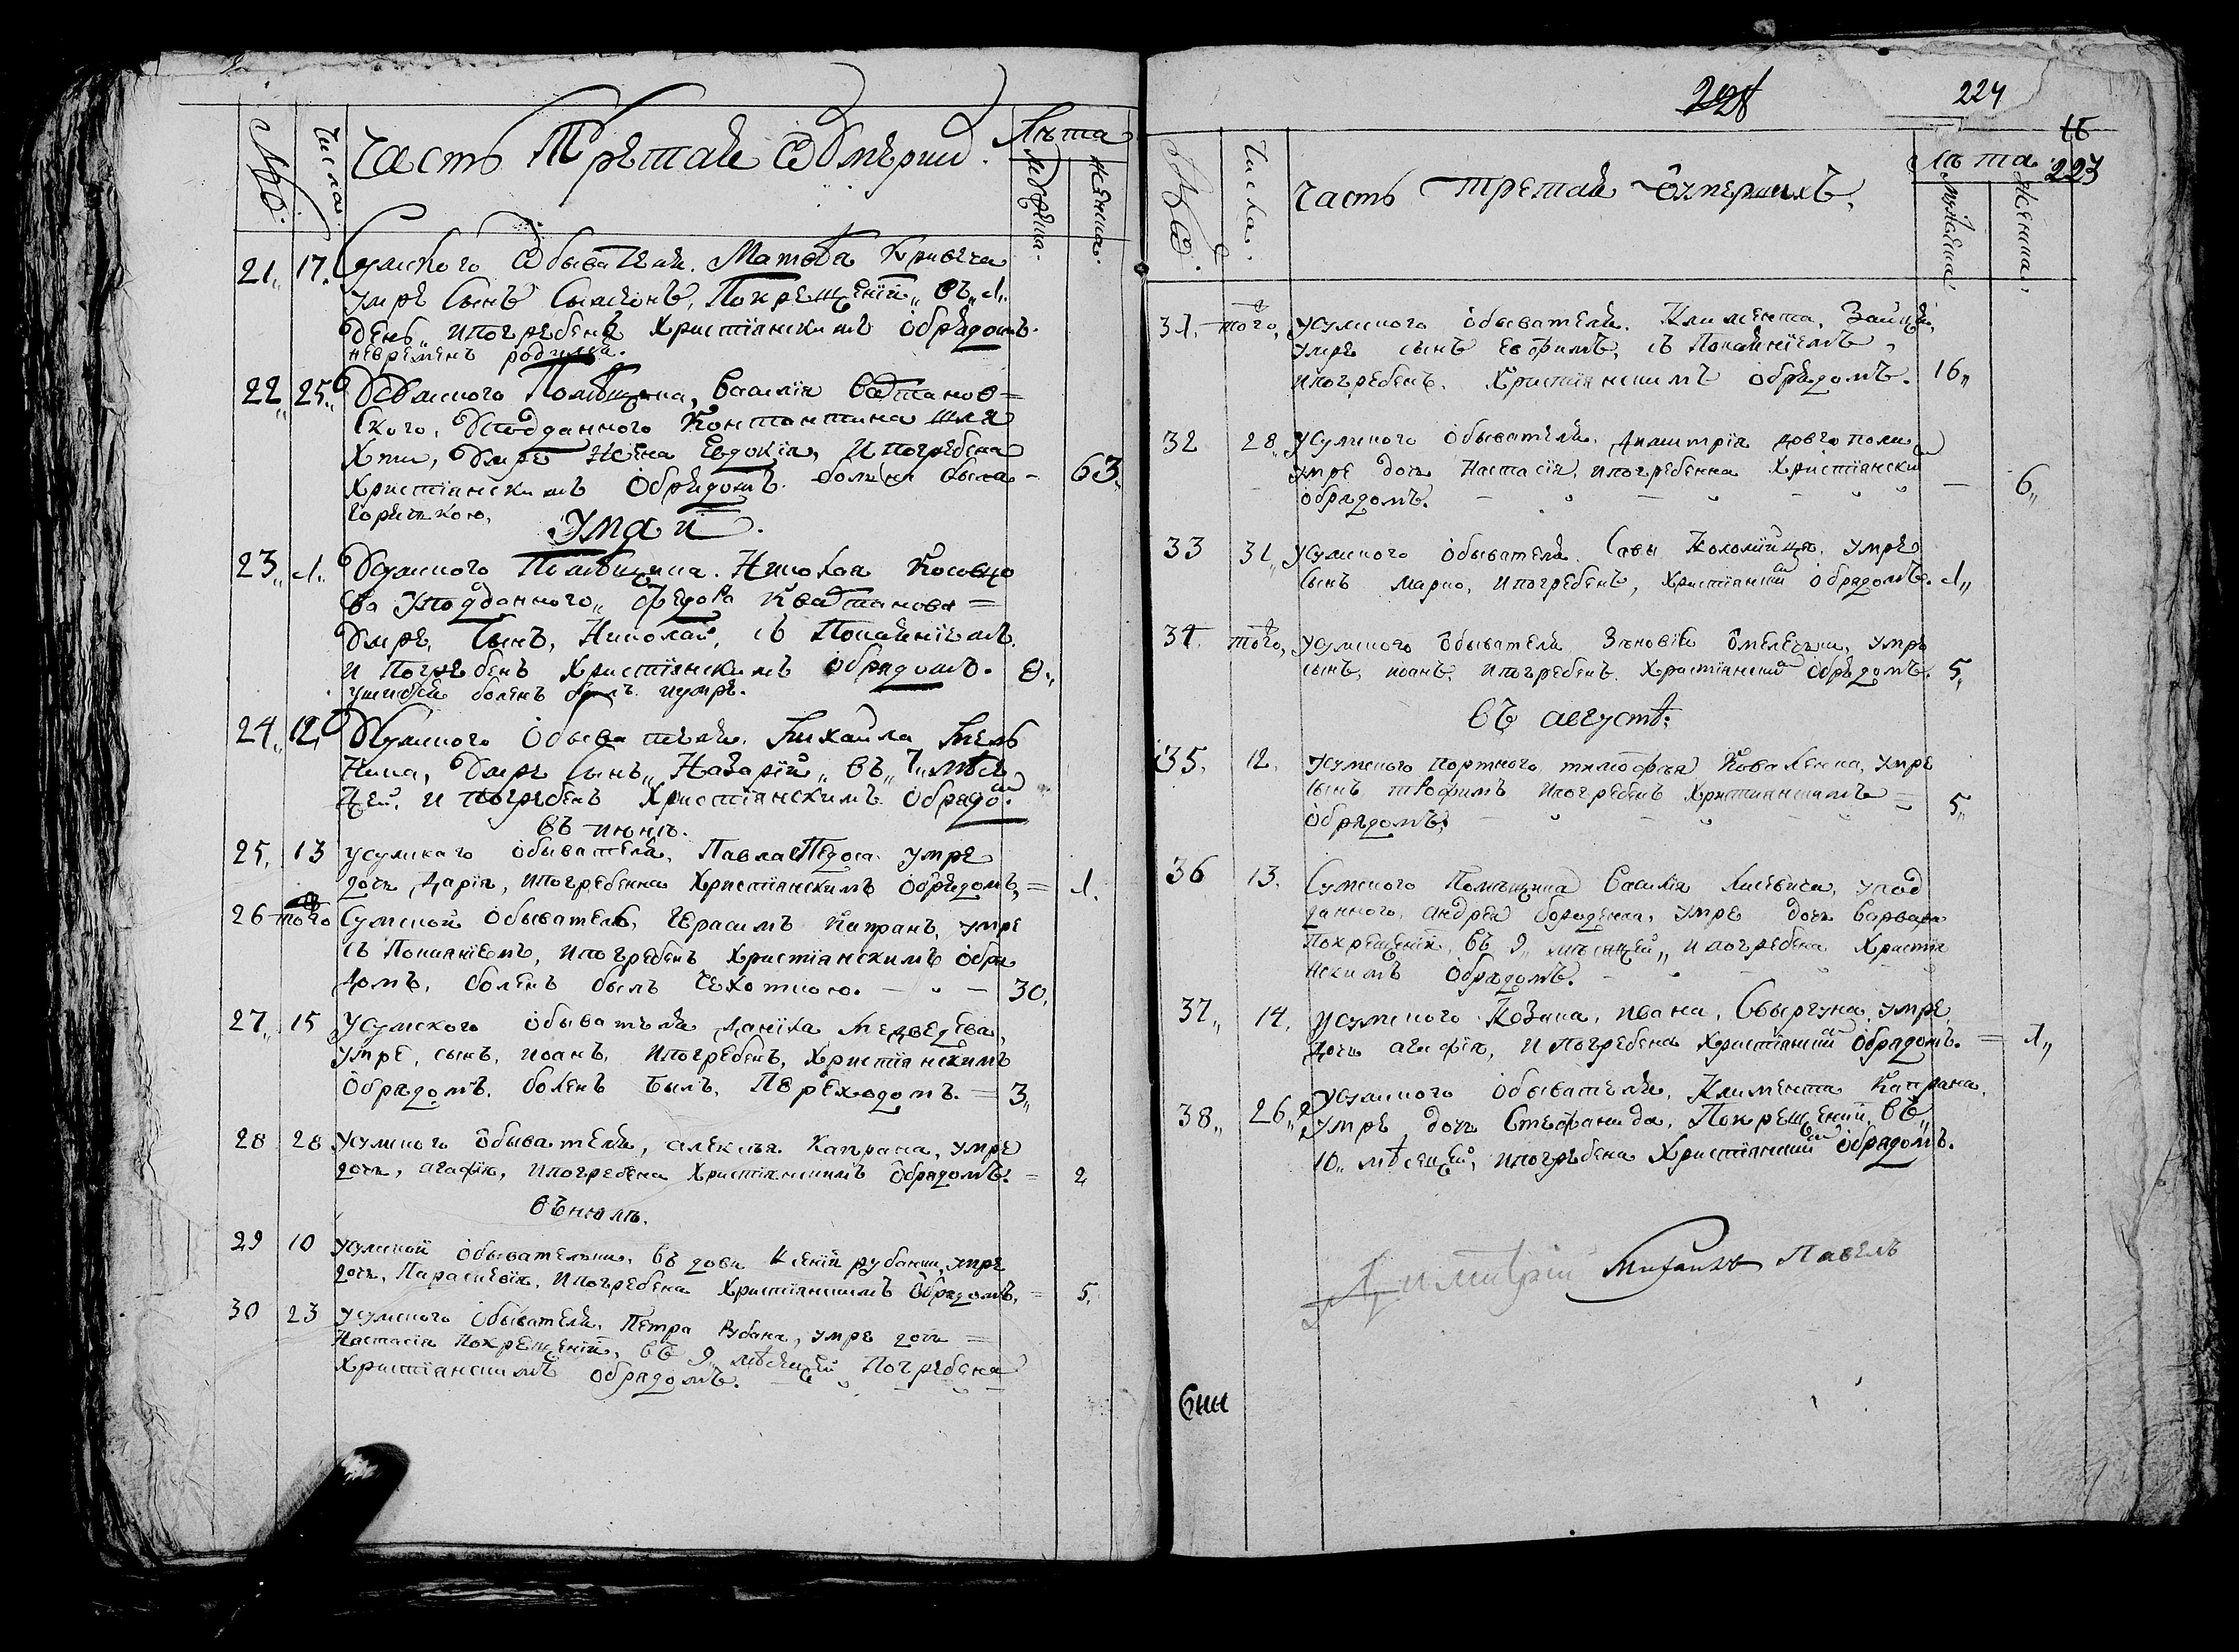 №
Числа
Часть Третая Обмерши.
Лѣта
Мужеска.
Женска.
21,, 17. Сумского Обывателя. Матвѣя Кривечи
умре Сынъ Сымеонъ, Покрещенїи,, въ,, 1,,
День,, ипогребенъ Христїянскимъ Обрядомъ.
неврѣменъ родился.
22,, 25,, Усумского Помѣщика, Василїя
Ского, Уподданного Контонтина Шля
Хти, Умре Жена Евдокїя, И погребена
Христїянскимъ Обрядомъ. болна была – 63,,
Горячкою,
Умаи.
23,, 1,, Усумского Помѣщика. Николая Косовцо
ва Уподданного,, Федора Квашанова =
Умре, Сынъ, Николай, съ Покаянїемъ
И Погребенъ Христїянскимъ Обрядомъ. 8,,
боленъ былъ иумре.
24,, 12, Усумского Обывателя. Михайла Мель
Ника, Умре Сынъ,, Назарїй,, въ,, 7,, мѣся
Цей, И погребенъ Христїянскимъ Обрядом
Въ июнѣ.
25, 13 усумкаго обывателя, Павла Педоса умре
дочь Дарїя, ипогребенна Христїянскимъ Обрядомъ, = 1.
26 того Сумской Обыватель, Герасимъ Капранъ, умре
съ Покаянїемъ, ипогребенъ Христїянскимъ Обря
домъ, боленъ былъ Чехоткою. – „ – 30,
27,, 15 Усумского обывателя Данїла Медведева,
умре, сынъ, иоанъ, ипогребенъ, Христїянскимъ
Обрядомъ. боленъ былъ, Переходомъ. = 3,,
28 28 Усумского Обывателя, алексѣя Капрана, умре
дочь, агафїя, ипогребена Христїянскимъ Обрядомъ. = 2
въиюлѣ.
29 10 Усумской Обывателки, въдови Ксенїи рубанки, умре
дочь, Параскевїя, ипогребена Христїянскимъ Обрядомъ, = 5.
30 23 Усумского Обывателя, Петра Рубана, умре дочь =
Настасїя Покрещенїи, въ 9,, мѣсяцей Погребена
Христїянскимъ Обрядомъ. – „ – „ –
224
223
№
Числа.
Часть третая Оумершихъ.
Лѣта
Мужеска
Женска.
31. того, Усумского Обывателя. Климента, Зайця,
умре сынъ Евфимъ, съ Покаянїемъ,
ипогребенъ. Христїянскимъ обрядомъ. 16,,
32 28,, Усумского Обывателя, Димитрїя довгополи
умре дочь Настасїя, ипогребенна Христїянским
обрядомъ. – „ – „ – „ „ – 6,,
33 31,, Усумского Обывателя. Савы Коломїйця. умре
Сынъ Марко, ипогребенъ, Христїянским обрядомъ. 1,,
34. того, Усумского Обывателя Зѣновїя Омелечки, умре
сынъ, иоанъ, ипогребенъ. Христїянским Обрядомъ. 5,,
Въ августѣ:
35, 12. Усумского портного тимофѣя Коваленка, умре
Сынъ трофимъ ипогребенъ Христианскимъ = 5,,
Обрядомъ. – „ – „ – „
36 13. Сумского Помѣщика Василїя Лисевича, упод
данного, андрея бородекла, умре дочь Варвара
Покрещенїи, въ 9,, мѣсяцей,, и погребена Христїя
нскимъ Обрядомъ. – „ – „ – „
37,, 14. Усумского Козака, ивана, Свыргуна, умре
дочь агафїя, и погребена Христїянским Обрядомъ. = 1,,
38,, 26,, Усумского Обывателя, Климента Капрана,
умре дочь Стефанида, Покрещенїи, въ,,
10,, мѣсяцей, ипогребена Христїянским Обрядомъ.
Димитрїи Михаилъ Павелъ